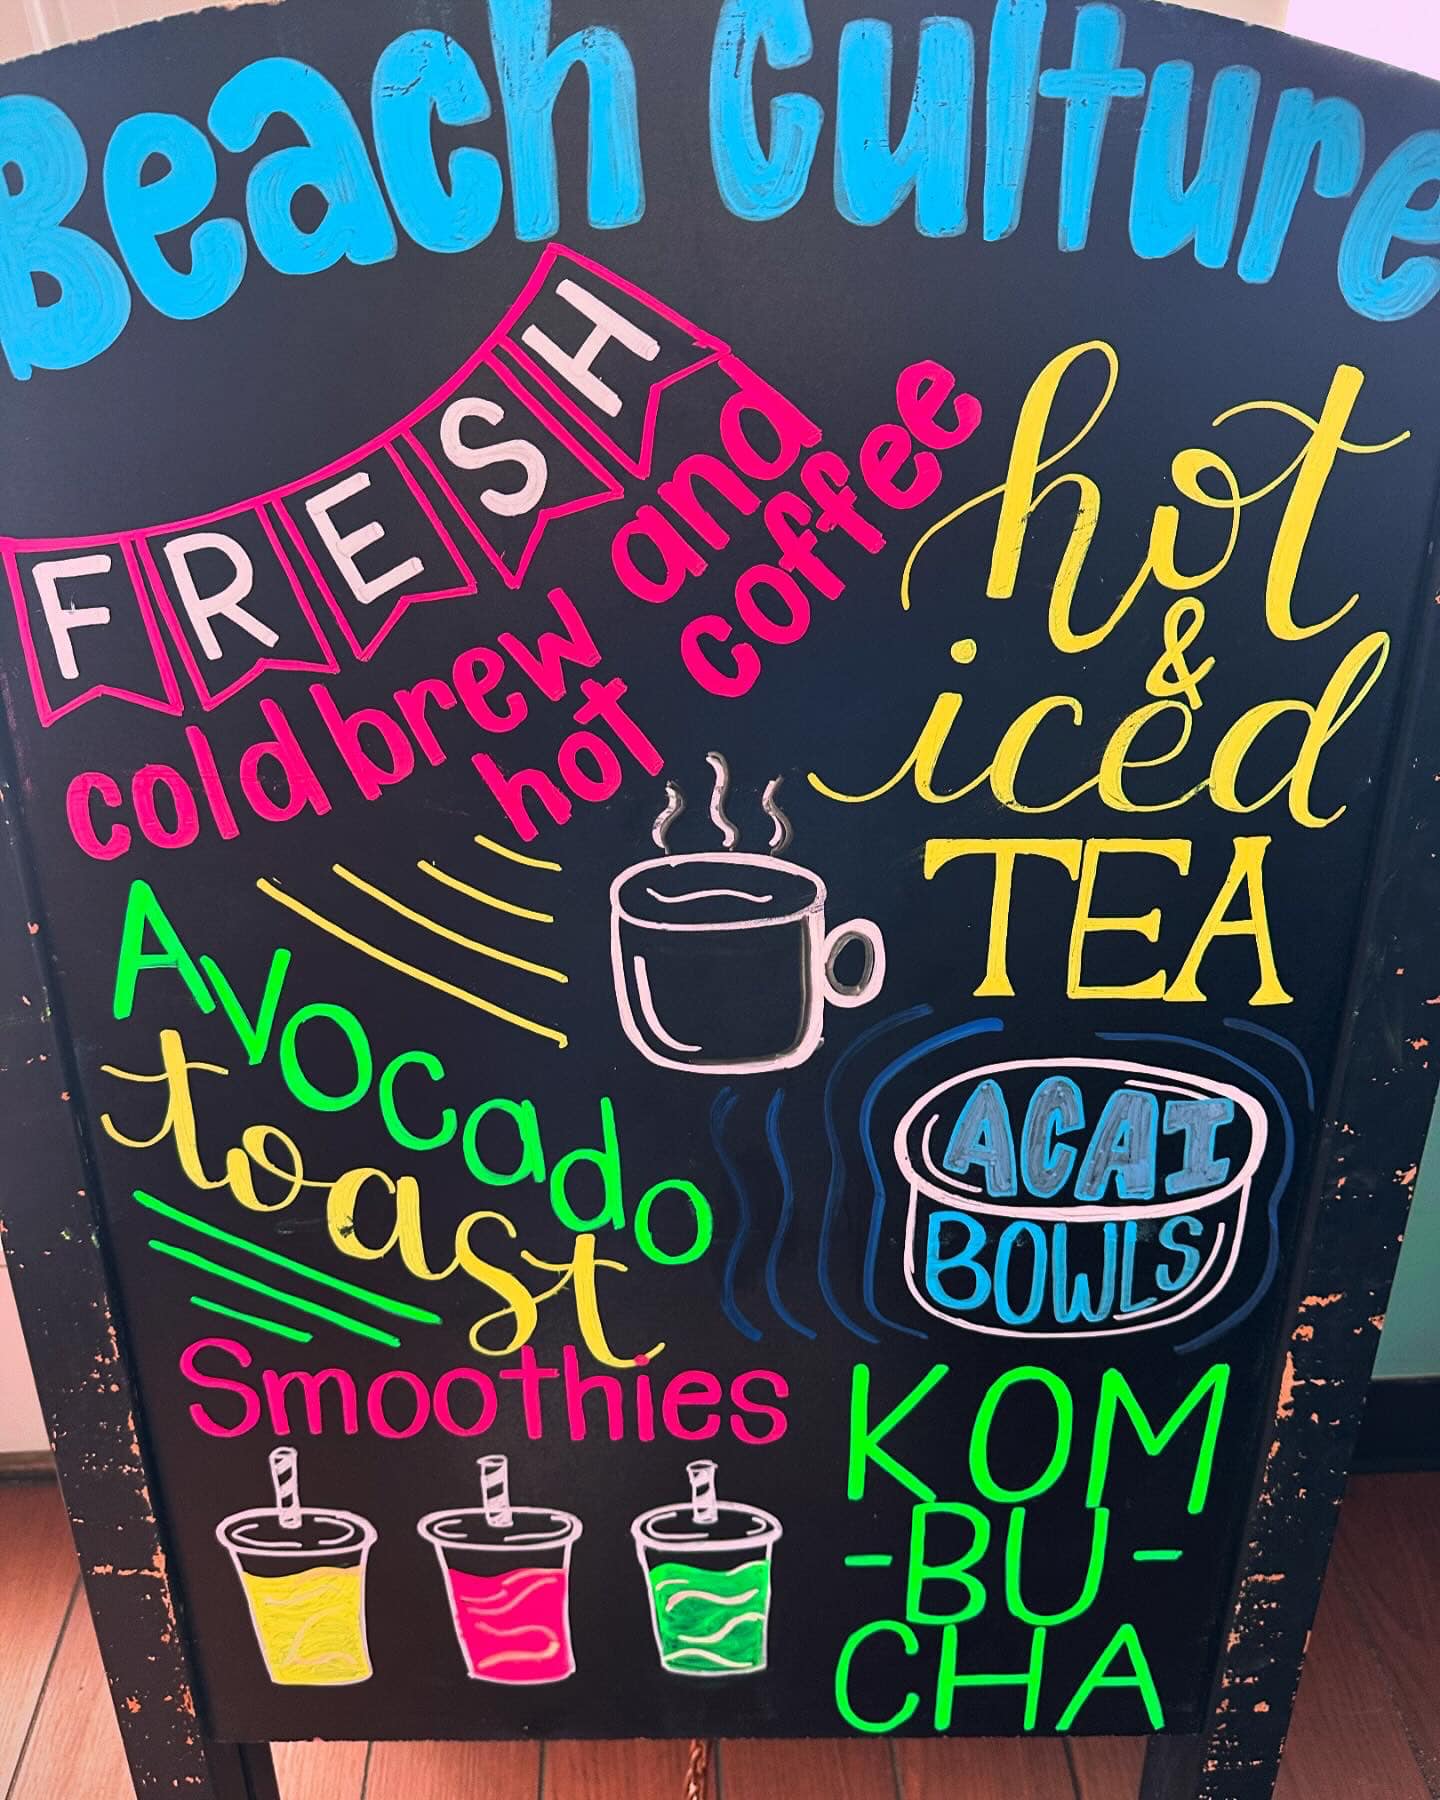 Beach Culture
FRESH
cold brew and
hot coffee
hot
&
iced
TEA
Avocado
toast
ACAI
BOWLS
Smoothies
KOM
-BU-
CHA